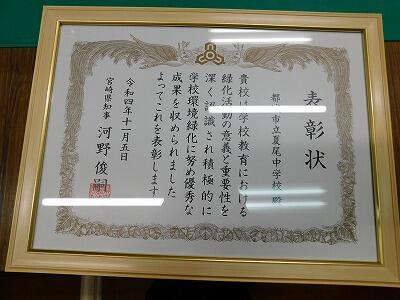 表彰状
都城市立夏尾中学校 殿
貴校は学校教育における
緑化活動の意義と重要性を
深く認識され積極的に
学校環境緑化に努め優秀な
成果を収められました
よってこれを表彰します
令和四年十一月五日
宮崎県知事 河野俊嗣